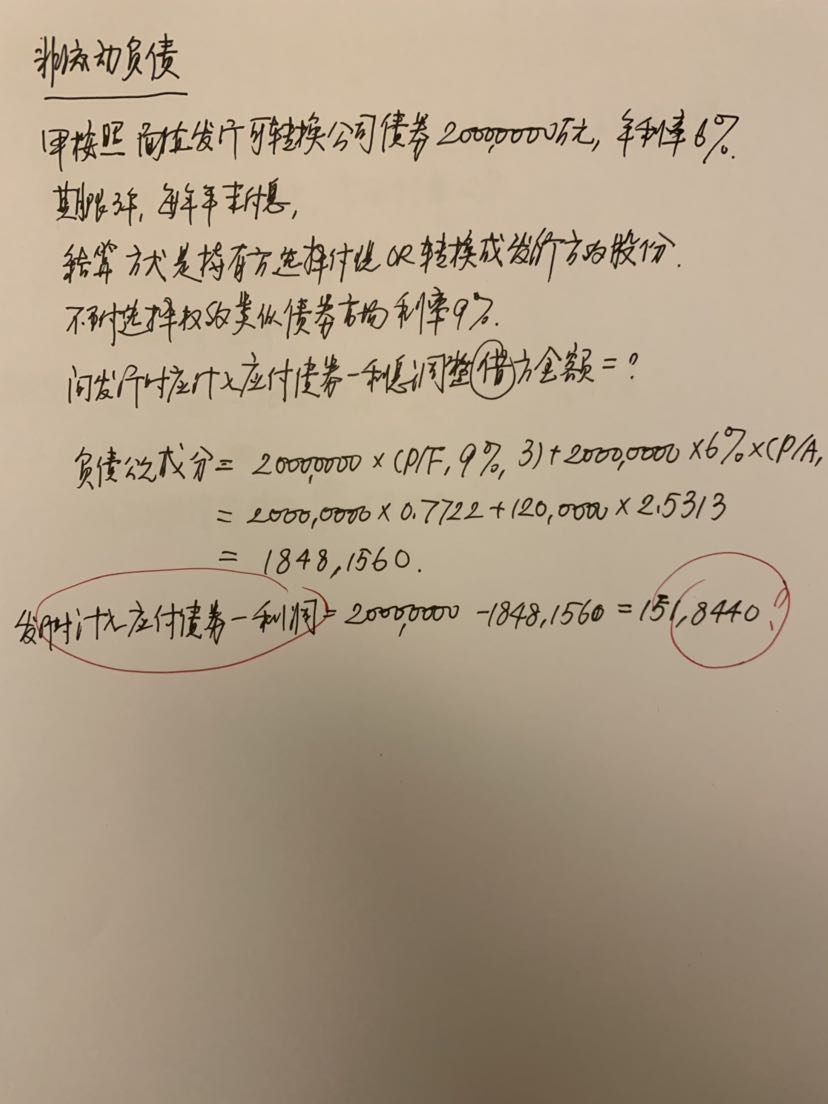 非流动负债
甲按照面值发行可转换公司债券2000,0000万元, 年利率6%.
期限3年, 每年年末付息,
结算方式是持有方选择付现OR转换成发行方的股份.
不附选择权的类似债券市场利率9%.
问发行时应计入应付债券-利息调整借方金额=?
负债公允成分= 2000,0000 × (P/F, 9%, 3) + 2000,0000 × 6% × (P/A,
= 2000,0000 × 0.7722 + 120,0000 × 2.5313
= 1848,1560.
发行时计入应付债券-利调= 2000,0000 - 1848,1560 = 151,8440?